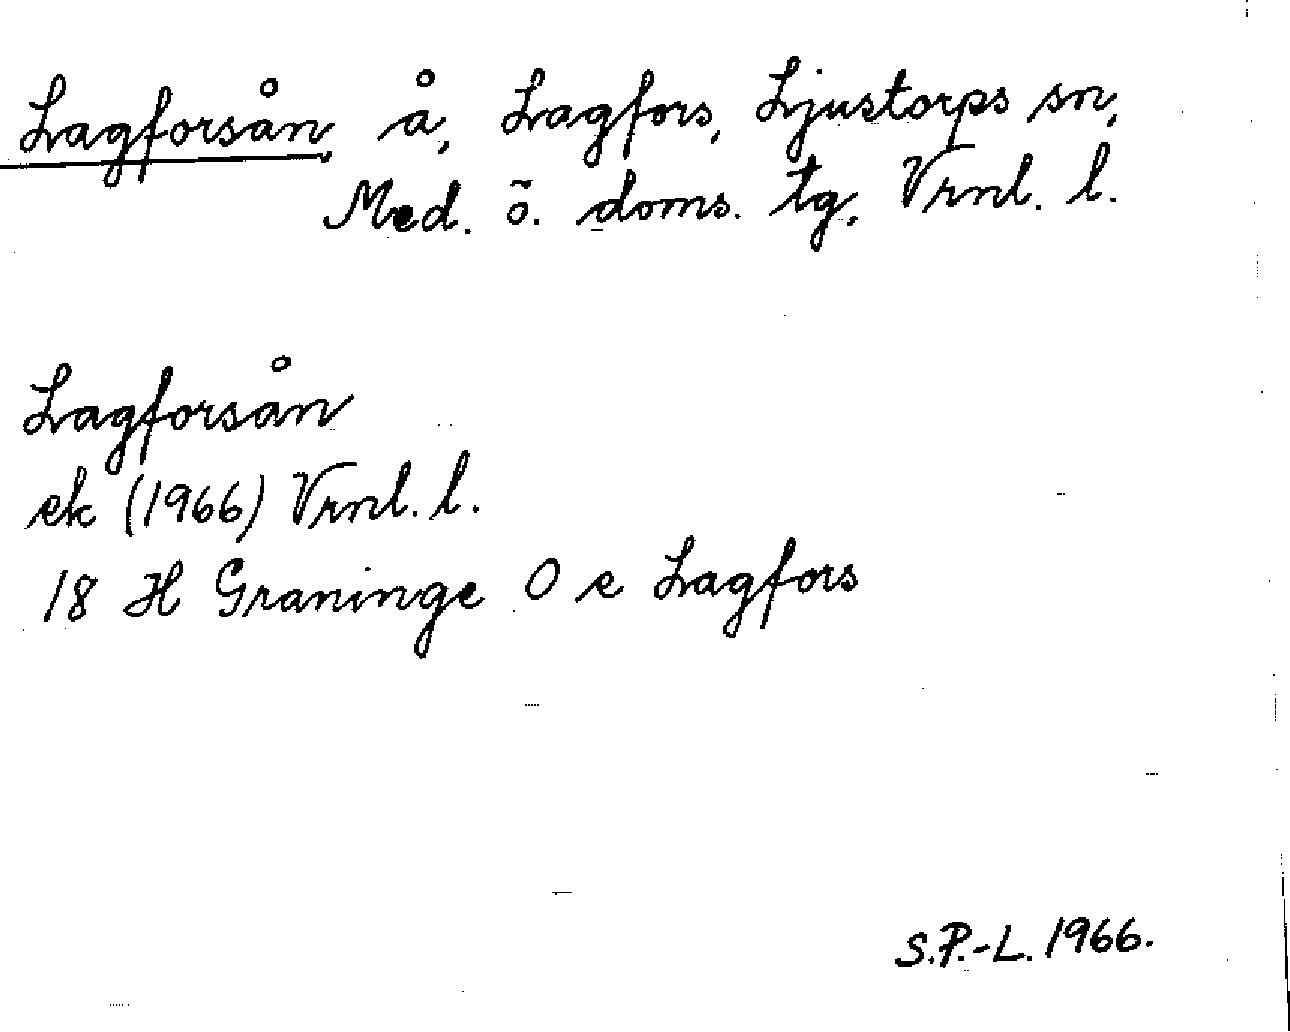 Lagforsån, å, Lagfors, Ljustorps sn,
Med. ö. doms. tg, Vrnl. l.
Lagforsån
ek (1966) Vrnl. l.
18 H Graninge O e Lagfors
S.P.-L. 1966.